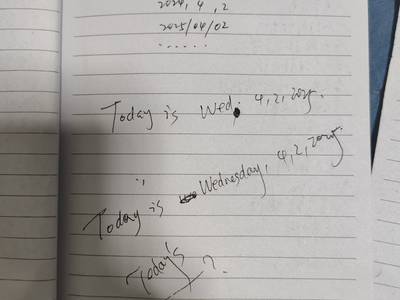 2024, 4, 2
2025/04/02
......
Today is Wed. 4, 2, 2025.
Today is Wednesday, 4, 2, 2025.
Today's ?